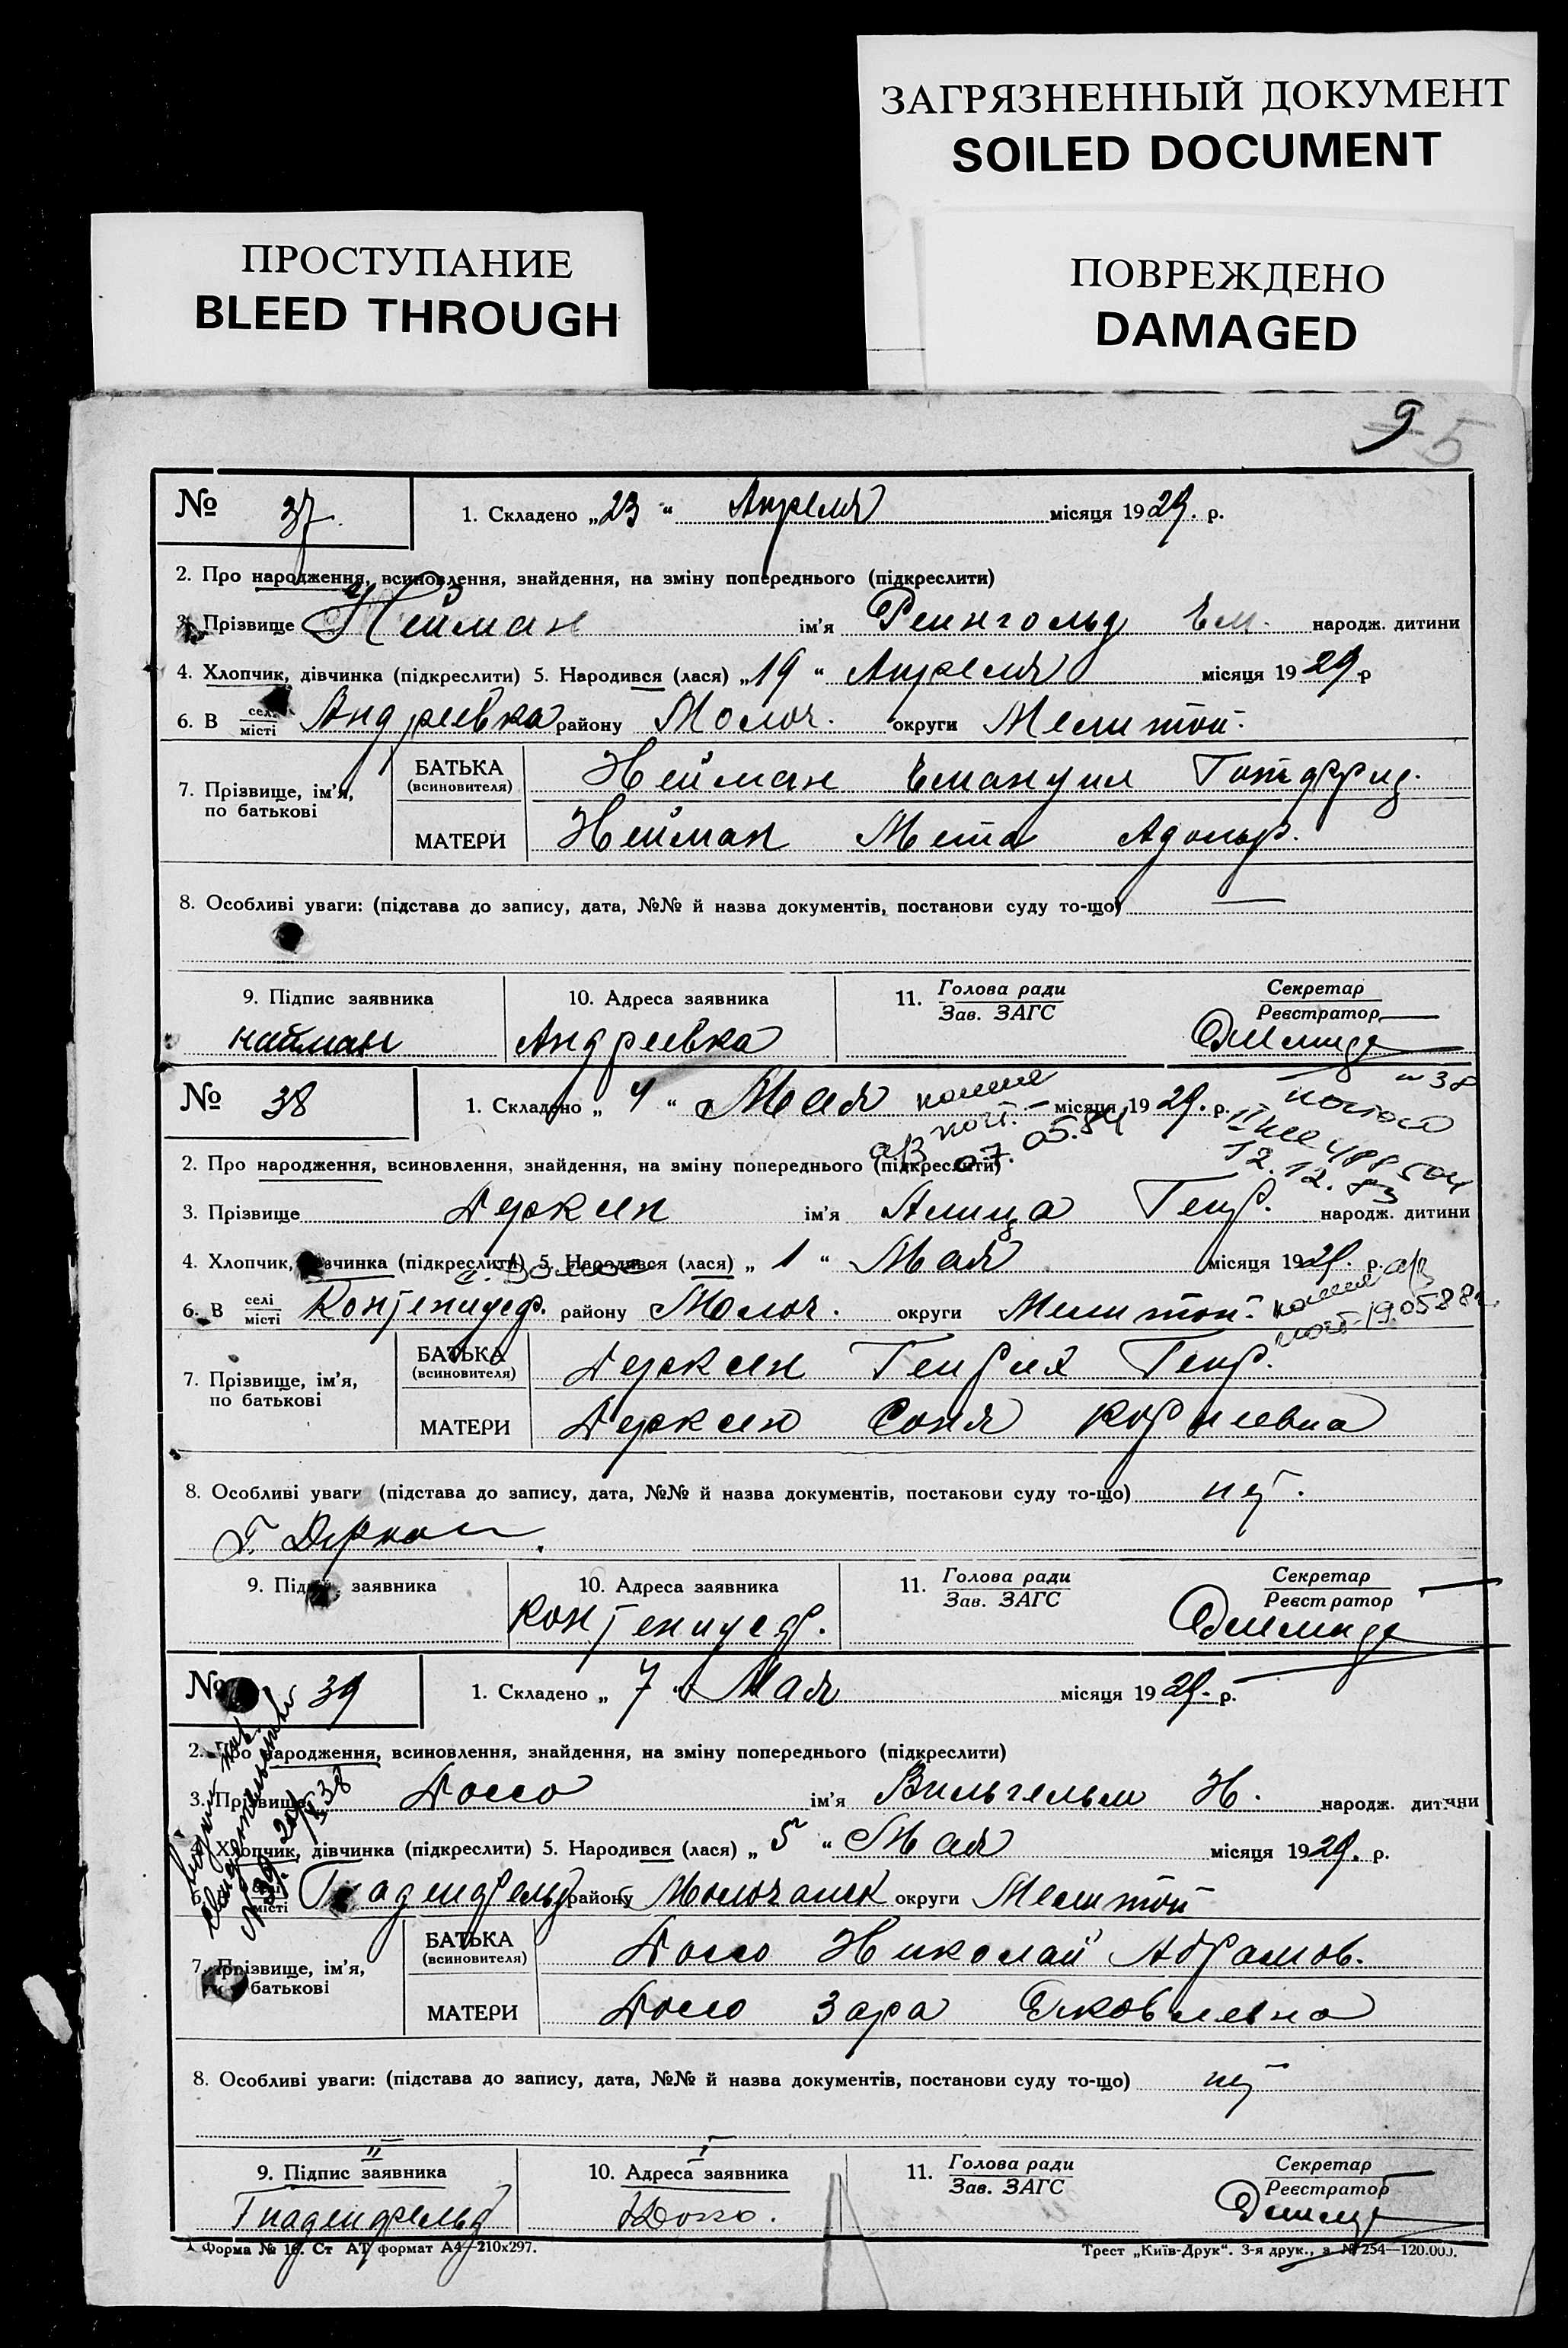 ЗАГРЯЗНЕННЫЙ ДОКУМЕНТ
SOILED DOCUMENT
ПРОСТУПАНИЕ
BLEED THROUGH
ПОВРЕЖДЕНО
DAMAGED
9 5
№ 37. 1. Складено „23“ Апреля місяця 1929. р.
2. Про народження, всиновлення, знайдення, на зміну попереднього (підкреслити)
3. Прізвище Нейман ім'я Реингольд Ем. народж. дитини
4. Хлопчик, дівчинка (підкреслити) 5. Народився (лася) „19“ Апреля місяця 1929 р
6. В селі/місті Андреевка району Молоч. округи Мелитоп.
7. Прізвище, ім'я, по батькові
БАТЬКА (всиновителя) Нейман Емануил Готфрид.
МАТЕРИ Нейман Мета Адольф.
8. Особливі уваги: (підстава до запису, дата, №№ й назва документів, постанови суду то-що) —
9. Підпис заявника 10. Адреса заявника 11. Голова ради/Зав. ЗАГС Секретар/Реєстратор
найман Андреевка
№ 38 1. Складено „4“ Мая місяця 1929. р.
07.05.84
12.12.83
2. Про народження, всиновлення, знайдення, на зміну попереднього (підкреслити)
3. Прізвище Дерксен ім'я Алица Генр. народж. дитини
4. Хлопчик, дівчинка (підкреслити) 5. Народився (лася) „1“ Мая місяця 1929. р.
6. В селі/місті Контениусф. району Молоч. округи Мелитоп.
7. Прізвище, ім'я, по батькові
БАТЬКА (всиновителя) Дерксен Генрих Генр.
МАТЕРИ Дерксен Соня Корнеевна
8. Особливі уваги (підстава до запису, дата, №№ й назва документів, постанови суду то-що) нет.
9. Підпис заявника 10. Адреса заявника 11. Голова ради/Зав. ЗАГС Секретар/Реєстратор
Контениусф.
№ 39 1. Складено „7“ Мая місяця 1929. р.
2. Про народження, всиновлення, знайдення, на зміну попереднього (підкреслити)
3. Прізвище ім'я Вильгельм Н. народж. дитини
4. Хлопчик, дівчинка (підкреслити) 5. Народився (лася) „5“ Мая місяця 1929. р.
6. В селі/місті Гнаденфельд району Молочанск округи Мелитоп
7. Прізвище, ім'я, по батькові
БАТЬКА (всиновителя) Николай Абрамов.
МАТЕРИ Зара Яковлевна
8. Особливі уваги: (підстава до запису, дата, №№ й назва документів, постанови суду то-що) нет
9. Підпис заявника 10. Адреса заявника 11. Голова ради/Зав. ЗАГС Секретар/Реєстратор
Гнаденфельд
Форма № 16. Ст АТ формат А4—210x297.
Трест „Київ-Друк“. 3-я друк., з. № 254—120.000.